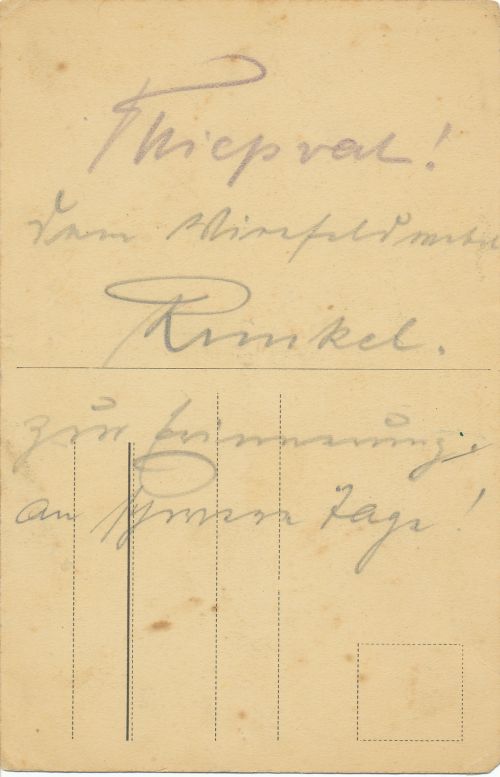 Thiepval!
dem Vizefeldwebel
Runkel.
zur Erinnerung.
an schwere Tage!